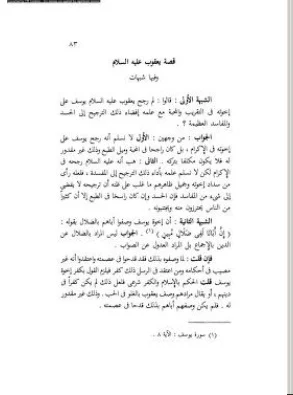 ٨٣
قصة يعقوب عليه السلام
وفيها شبهات
الشبهة الأولى : قالوا : لم رجح يعقوب عليه السلام يوسف على
إخوته في التقريب والمحبة مع علمه بإفضاء ذلك الترجيح إلى الحسد
والمفاسد العظيمة ؟ .
الجواب : من وجهين : الأول لا نسلم أنه رجح يوسف على
إخوته في الإكرام ، بل كان راجحا في المحبة وميل الطبع وذلك غير مقدور
له فلا يكون مكلفا بتركه . الثاني : هب أنه عليه السلام رجحه في
الإكرام لكن لا نسلم علمه بأداء ذلك الترجيح إلى المفسدة ، فلعله رأى
من سداد إخوته وجميل ظاهرهم ما غلب على ظنه أن ترجيحه لا يفضي
إلى شيء من المفاسد فإن الحسد وإن كان راسخا في الطبع إلا أن كثيرا
من الناس يحترزون عنه ويجتنبونه .
الشبهة الثانية : أن إخوة يوسف وصفوا أباهم بالضلال بقوله :
( إن أبانا لفي ضلال مبين ) (١) . الجواب ليس المراد بالضلال عن
الدين بالإجماع بل المراد العدول عن الصواب .
فإن قلت : لما وصفوه بذلك فقد قدحوا في عصمته واعتقدوا أنه غير
مصيب في أحكامه ومن اعتقد في الرسل ذلك كفر فيلزم القول بكفر إخوة
يوسف قلت الحكم بالإسلام والكفر شرعي فلعل ذلك لم يكن كفرا في
دينهم ، أو يقال مرادهم وصف يعقوب بالغلو في الحب . وذلك غير مقدور
له . فلم يكن وصفهم أباهم بذلك قدحا في عصمته .
(١) سورة يوسف : الآية ٨ .